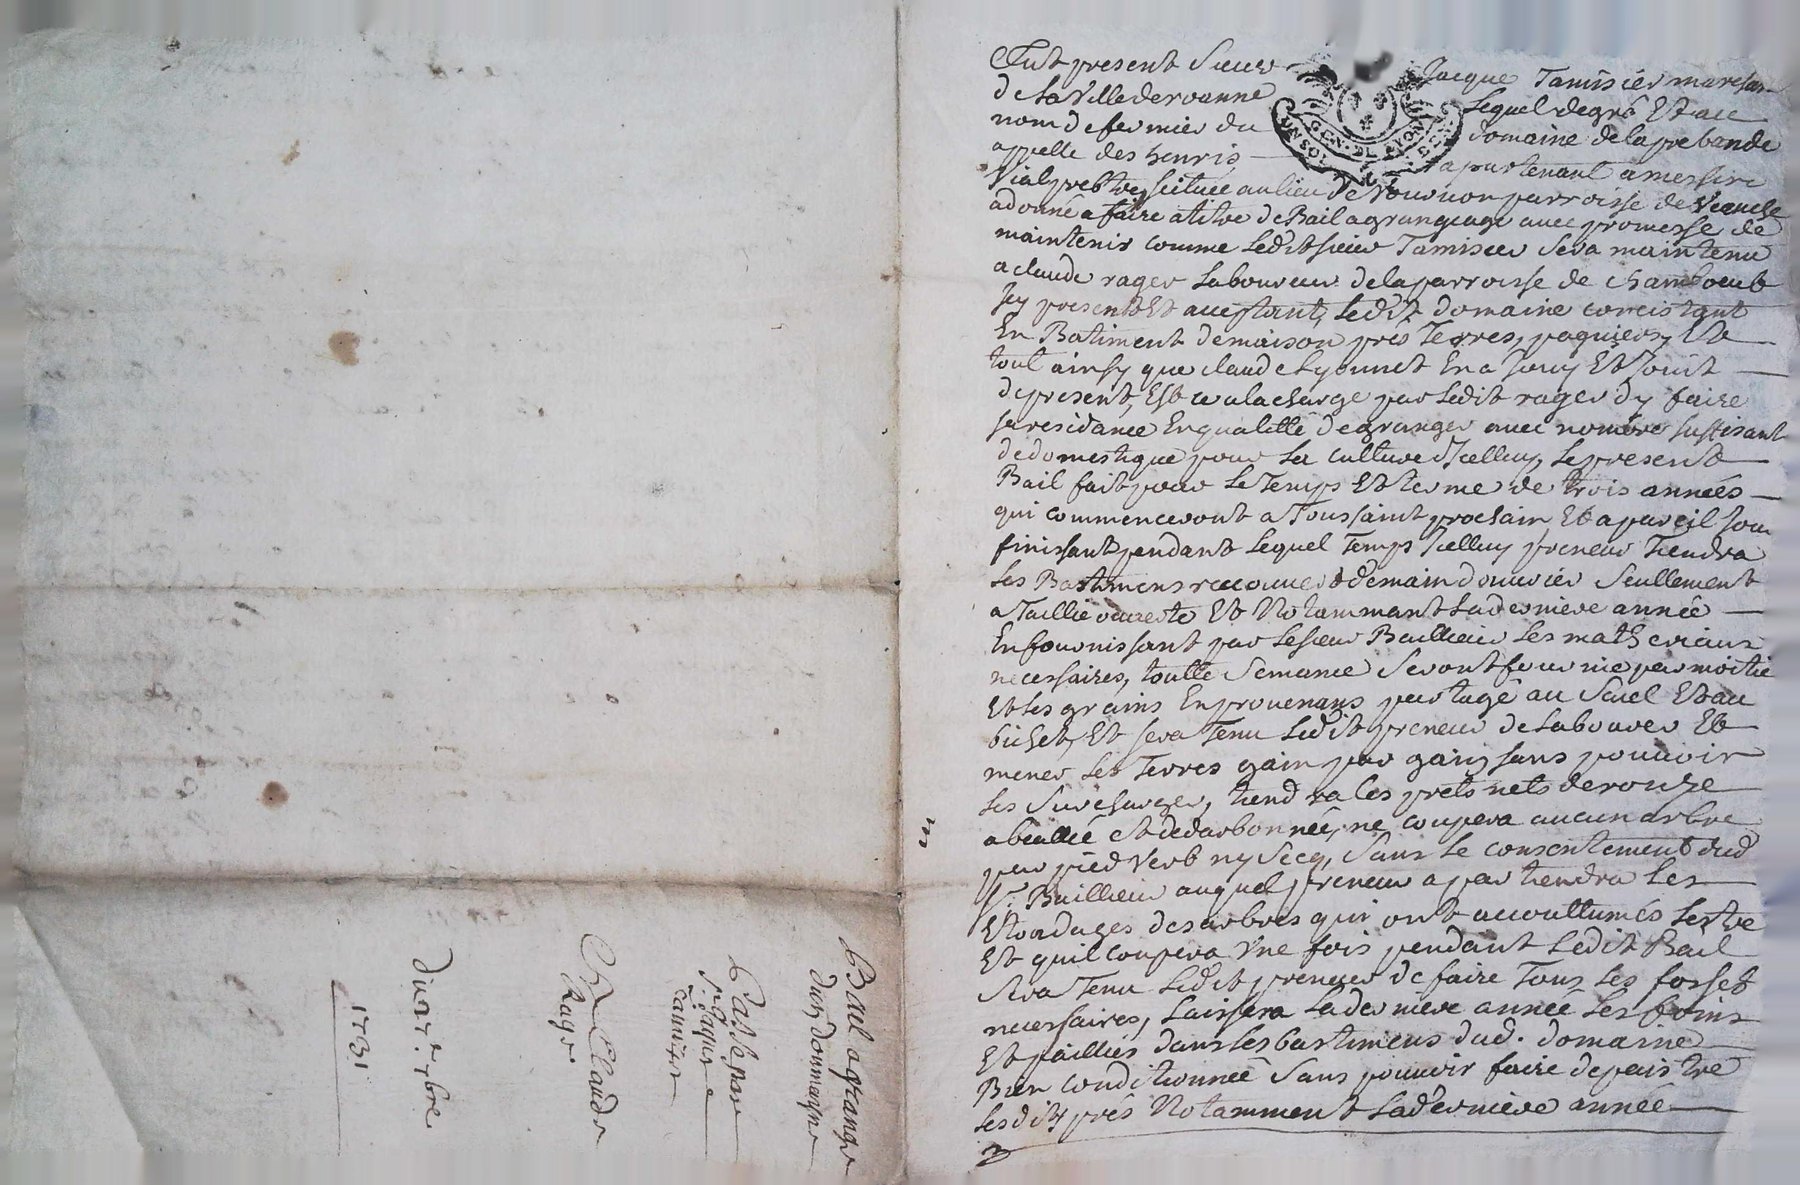 Fut present Sieur Jacque Tamisier marchan
de la Ville de roanne lequel de gré Et au
nom de fermier du domaine de la prebande
appellé des henris apartenant a messire
Vialy prebtre, scituée au lieu de Vournon parroisse de
a donné a faire a titre de Bail a grangeage avec promesse de
maintenir comme ledit sieur Tamisier sera maintenu
a claude rager laboureur de la parroisse de chamboeub
Jcy present Et acceptant, ledit domaine concistant
En Batiment de maison prés Terres, paquiers, Et
tout ainsy que claude Lyonnet En a Jouy Et Jouit
de present, Est ce a la charge par ledit rager dy faire
sa residance En qualitté de granger avec nombre suffisant
de domestique pour la culture dJcelluy, le present
Bail fait pour le Temps Et terme de trois années
qui commenceront a Toussaint prochain Et a pareil Jour
finissant pendant lequel Temps Jcelluy preneur Tiendra
les Bastimens recouvers de main douvrier Seullement
a Taillie ouverte Et Notammant la derniere année
En fournissant par le sieur Baillieur les matheriaux
necessaires, toutte Semance Seront fournie par moitié
Et les grains En provenans partagé au Seuel Et au
bichet, Et sera Tenu ledit preneur de labourer Et
mener les Terres gain par gain sans pouvoir
les surcharger, tiendra les prets nets de rouze
abeallié et dedarbonnée, ne coupera aucun arbre
par pied Vert ny Secq, sans le consentement dud
Sr. Baillieur auquel preneur apartiendra les
Etordages des arbres qui ont accouttumés lestre
Et quil coupera Vne fois pendant ledit Bail
Sera Tenu ledit preneur de faire Tous les fossés
necessaires, laissera la derniere année les foins
Et pailliés dans les bastimens dud. domaine
Bien conditionnée Sans pouvoir faire depaistre
lesdits prés Notamment la derniere année
Bail a grange
dun dommayne
Passé par
Sr Jaque
Tamisier
A Claude
Rage
du 27e. 7bre
1731
GEN. DE LYON
UN SOL